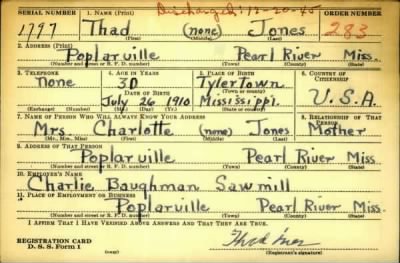 Discharged: 12-20-45
SERIAL NUMBER 1. NAME (Print) ORDER NUMBER
1797 Thad (none) Jones 283
(First) (Middle) (Last)
2. ADDRESS (Print)
Poplarville Pearl River Miss.
(Number and street or R. F. D. number) (Town) (County) (State)
3. TELEPHONE 4. AGE IN YEARS 5. PLACE OF BIRTH 6. COUNTRY OF CITIZENSHIP
None 30 Tylertown
DATE OF BIRTH (Town or county)
July 26 1910 Mississippi. U.S.A.
(Exchange) (Number) (Mo.) (Day) (Yr.) (State or country)
7. NAME OF PERSON WHO WILL ALWAYS KNOW YOUR ADDRESS 8. RELATIONSHIP OF THAT PERSON
Mrs. Charlotte (none) Jones Mother
(Mr., Mrs., Miss) (First) (Middle) (Last)
9. ADDRESS OF THAT PERSON
Poplarville Pearl River Miss
(Number and street or R. F. D. number) (Town) (County) (State)
10. EMPLOYER'S NAME
Charlie Baughman Sawmill
11. PLACE OF EMPLOYMENT OR BUSINESS
Poplarville Pearl River Miss.
(Number and street or R. F. D. number) (Town) (County) (State)
I AFFIRM THAT I HAVE VERIFIED ABOVE ANSWERS AND THAT THEY ARE TRUE.
REGISTRATION CARD
D. S. S. Form 1 (Registrant's signature)